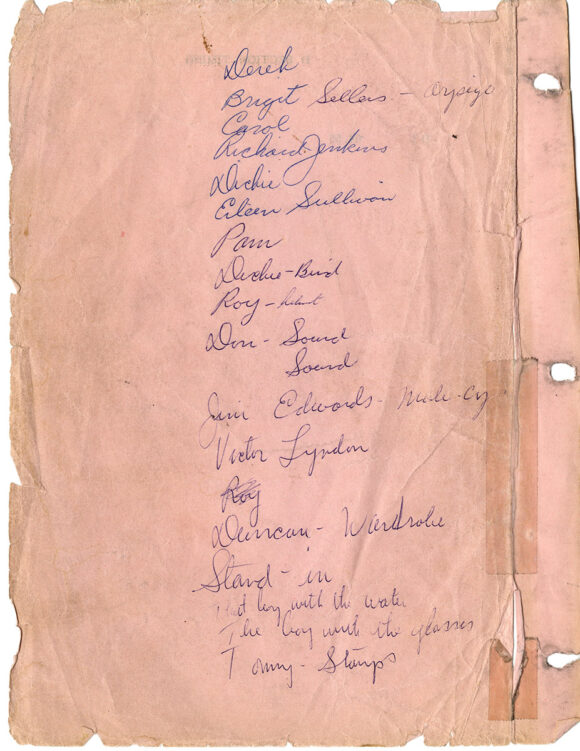 Derek
Brigit Sellers -
Carol
Richard Jenkins
Dickie
Eileen Sullivan
Pam
Dickie - Bird
Roy -
Don - Sound
Sound
Jim Edwards - Make-up
Victor Lyndon
Roy
Duncan - Wardrobe
Stand-in
boy with the water
The boy with the glasses
Tommy - Stamps